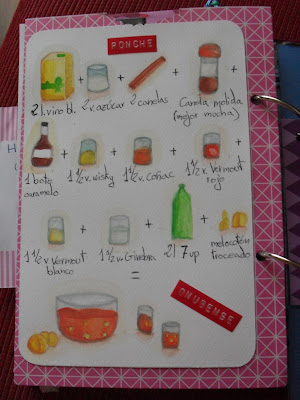 PONCHE
2 l. vino bl. 2 v. azúcar 2 canelas Canela molida
(mejor mucha)
1 bote 1 1/2 v. wisky 1 1/2 v. Coñac 1 1/2 v. Vermout
caramelo rojo
1 1/2 v. Vermout 1 1/2 v. Ginebra 2 l 7up melocotón
blanco troceado
=
ONUBENSE